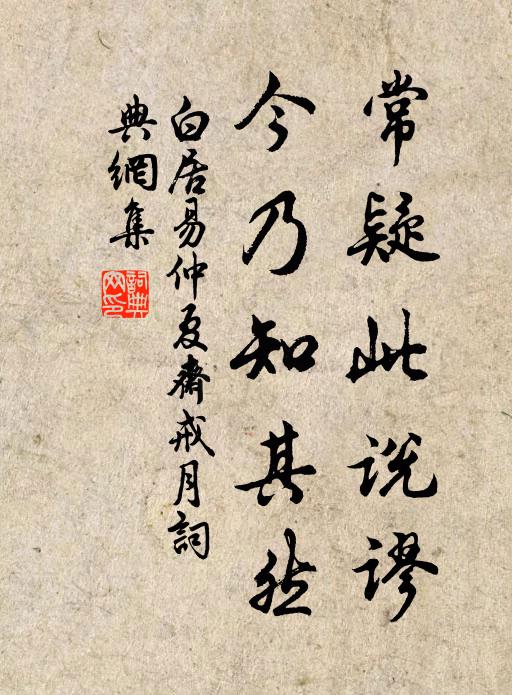 常疑此说谬
今乃知其然
白居易仲夏齋戒月詞
典網集
詞典
网印